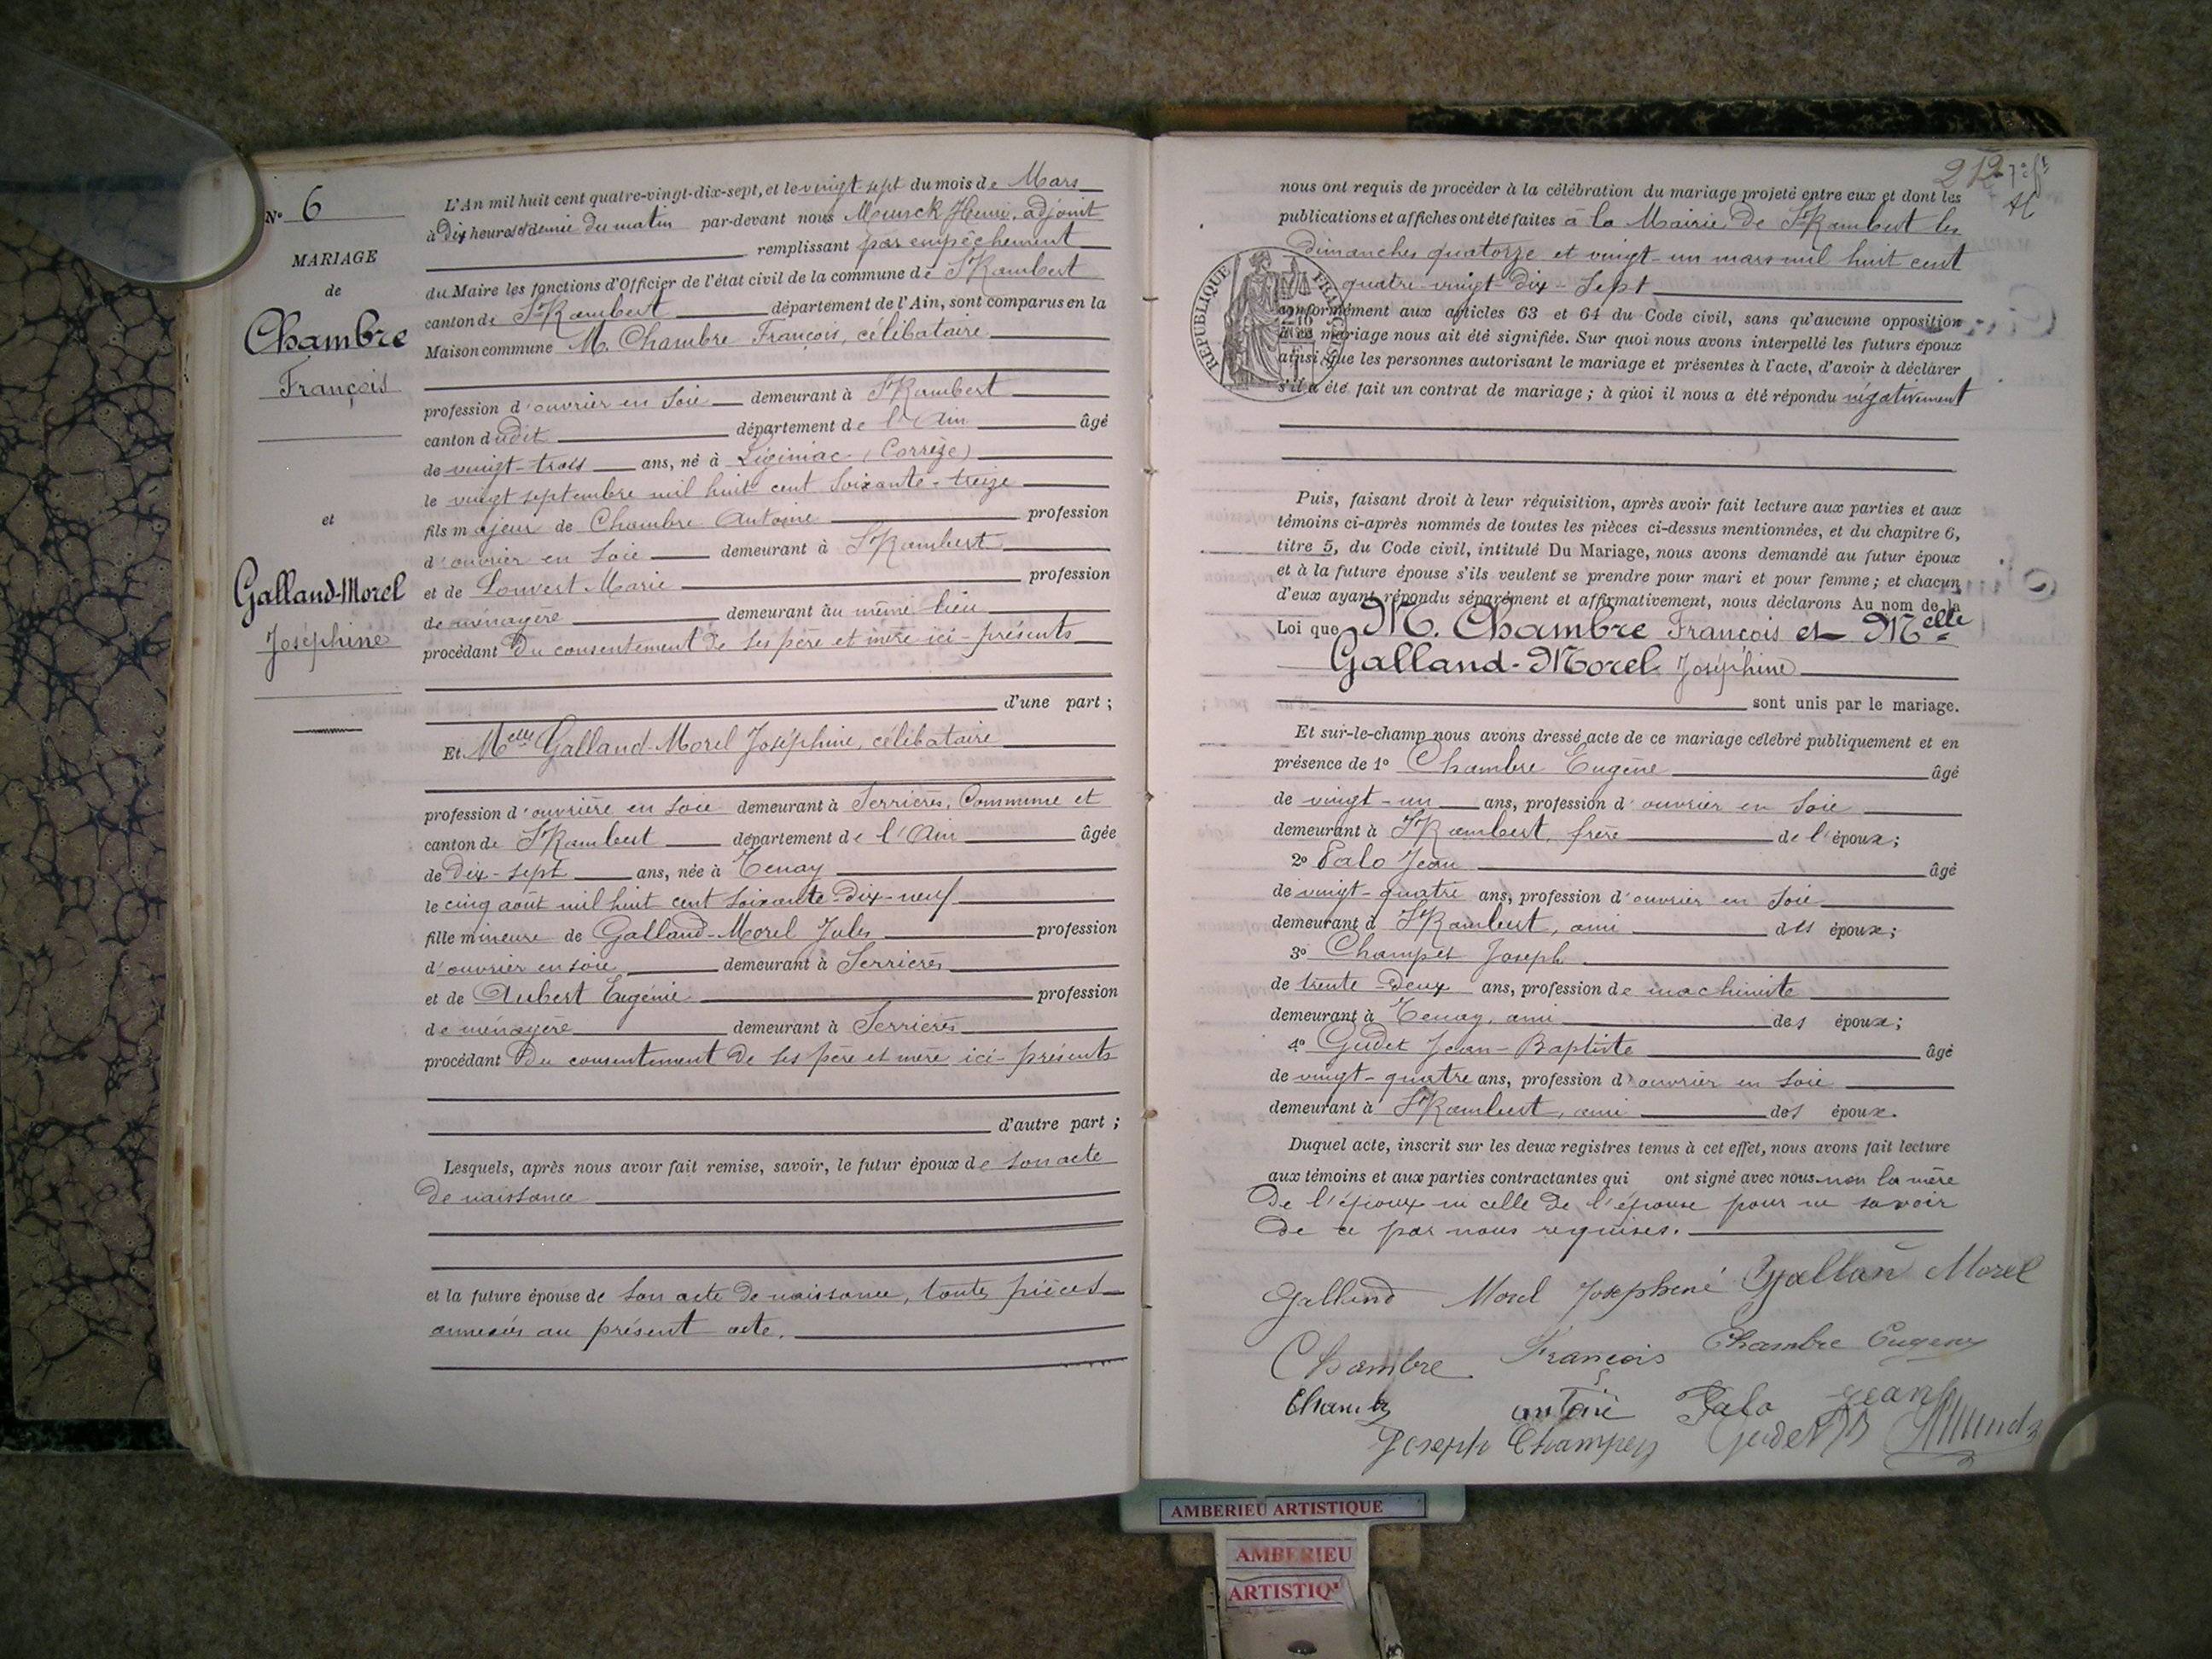 N° 6
MARIAGE
de
Chambre
François
et
Galland-Morel
Joséphine
L'An mil huit cent quatre-vingt-dix-sept, et le vingt-sept du mois de Mars
à dix heures et demie du matin par-devant nous Henri, adjoint
remplissant par empêchement
du Maire les fonctions d'Officier de l'état civil de la commune de St Rambert
canton de St Rambert département de l'Ain, sont comparus en la
Maison commune M. Chambre François, célibataire
profession d'ouvrier en soie demeurant à St Rambert
canton dudit département de l'Ain âgé
de vingt-trois ans, né à Liginiac (Corrèze)
le vingt septembre mil huit cent soixante-treize
fils majeur de Chambre Antoine profession
d'ouvrier en soie demeurant à St Rambert
et de Louvert Marie profession
de ménagère demeurant au même lieu
procédant du consentement de ses père et mère ici-présents
d'une part ;
Et Melle Galland-Morel Joséphine, célibataire
profession d'ouvrière en soie demeurant à Serrières, Commune et
canton de St Rambert département de l'Ain âgée
de dix-sept ans, née à Tenay
le cinq août mil huit cent soixante-dix-neuf
fille mineure de Galland-Morel Jules profession
d'ouvrier en soie demeurant à Serrières
et de Aubert Eugénie profession
de ménagère demeurant à Serrières
procédant du consentement de ses père et mère ici-présents
d'autre part ;
Lesquels, après nous avoir fait remise, savoir, le futur époux de son acte
de naissance
et la future épouse de son acte de naissance, toutes pièces
annexées au présent acte.
212
nous ont requis de procéder à la célébration du mariage projeté entre eux et dont les
publications et affiches ont été faites à la Mairie de St Rambert les
dimanches quatorze et vingt-un mars mil huit cent
quatre-vingt-dix-sept
RÉPUBLIQUE FRANÇAISE
conformément aux articles 63 et 64 du Code civil, sans qu'aucune opposition
à ce mariage nous ait été signifiée. Sur quoi nous avons interpellé les futurs époux
ainsi que les personnes autorisant le mariage et présentes à l'acte, d'avoir à déclarer
s'il a été fait un contrat de mariage ; à quoi il nous a été répondu négativement
Puis, faisant droit à leur réquisition, après avoir fait lecture aux parties et aux
témoins ci-après nommés de toutes les pièces ci-dessus mentionnées, et du chapitre 6,
titre 5, du Code civil, intitulé Du Mariage, nous avons demandé au futur époux
et à la future épouse s'ils veulent se prendre pour mari et pour femme ; et chacun
d'eux ayant répondu séparément et affirmativement, nous déclarons Au nom de la
Loi que M. Chambre François et Melle
Galland-Morel Joséphine
sont unis par le mariage.
Et sur-le-champ nous avons dressé acte de ce mariage célébré publiquement et en
présence de 1° Chambre Eugène âgé
de vingt-un ans, profession d'ouvrier en soie
demeurant à St Rambert, frère de l'époux ;
2° Palo Jean âgé
de vingt-quatre ans, profession d'ouvrier en soie
demeurant à St Rambert, ami des époux ;
3° Champet Joseph
de trente-deux ans, profession de machiniste
demeurant à Tenay, ami des époux ;
4° Gudet Jean-Baptiste âgé
de vingt-quatre ans, profession d'ouvrier en soie
demeurant à St Rambert, ami des époux.
Duquel acte, inscrit sur les deux registres tenus à cet effet, nous avons fait lecture
aux témoins et aux parties contractantes qui ont signé avec nous non la mère
de l'époux ni celle de l'épouse pour ne savoir
de ce par nous requises.
Galland Morel Josephine Gallan Morel
Chambre François Chambre Eugene
antoine Palo Jean
Joseph Champey Gudet JB
AMBERIEU ARTISTIQUE
AMBERIEU
ARTISTIQ